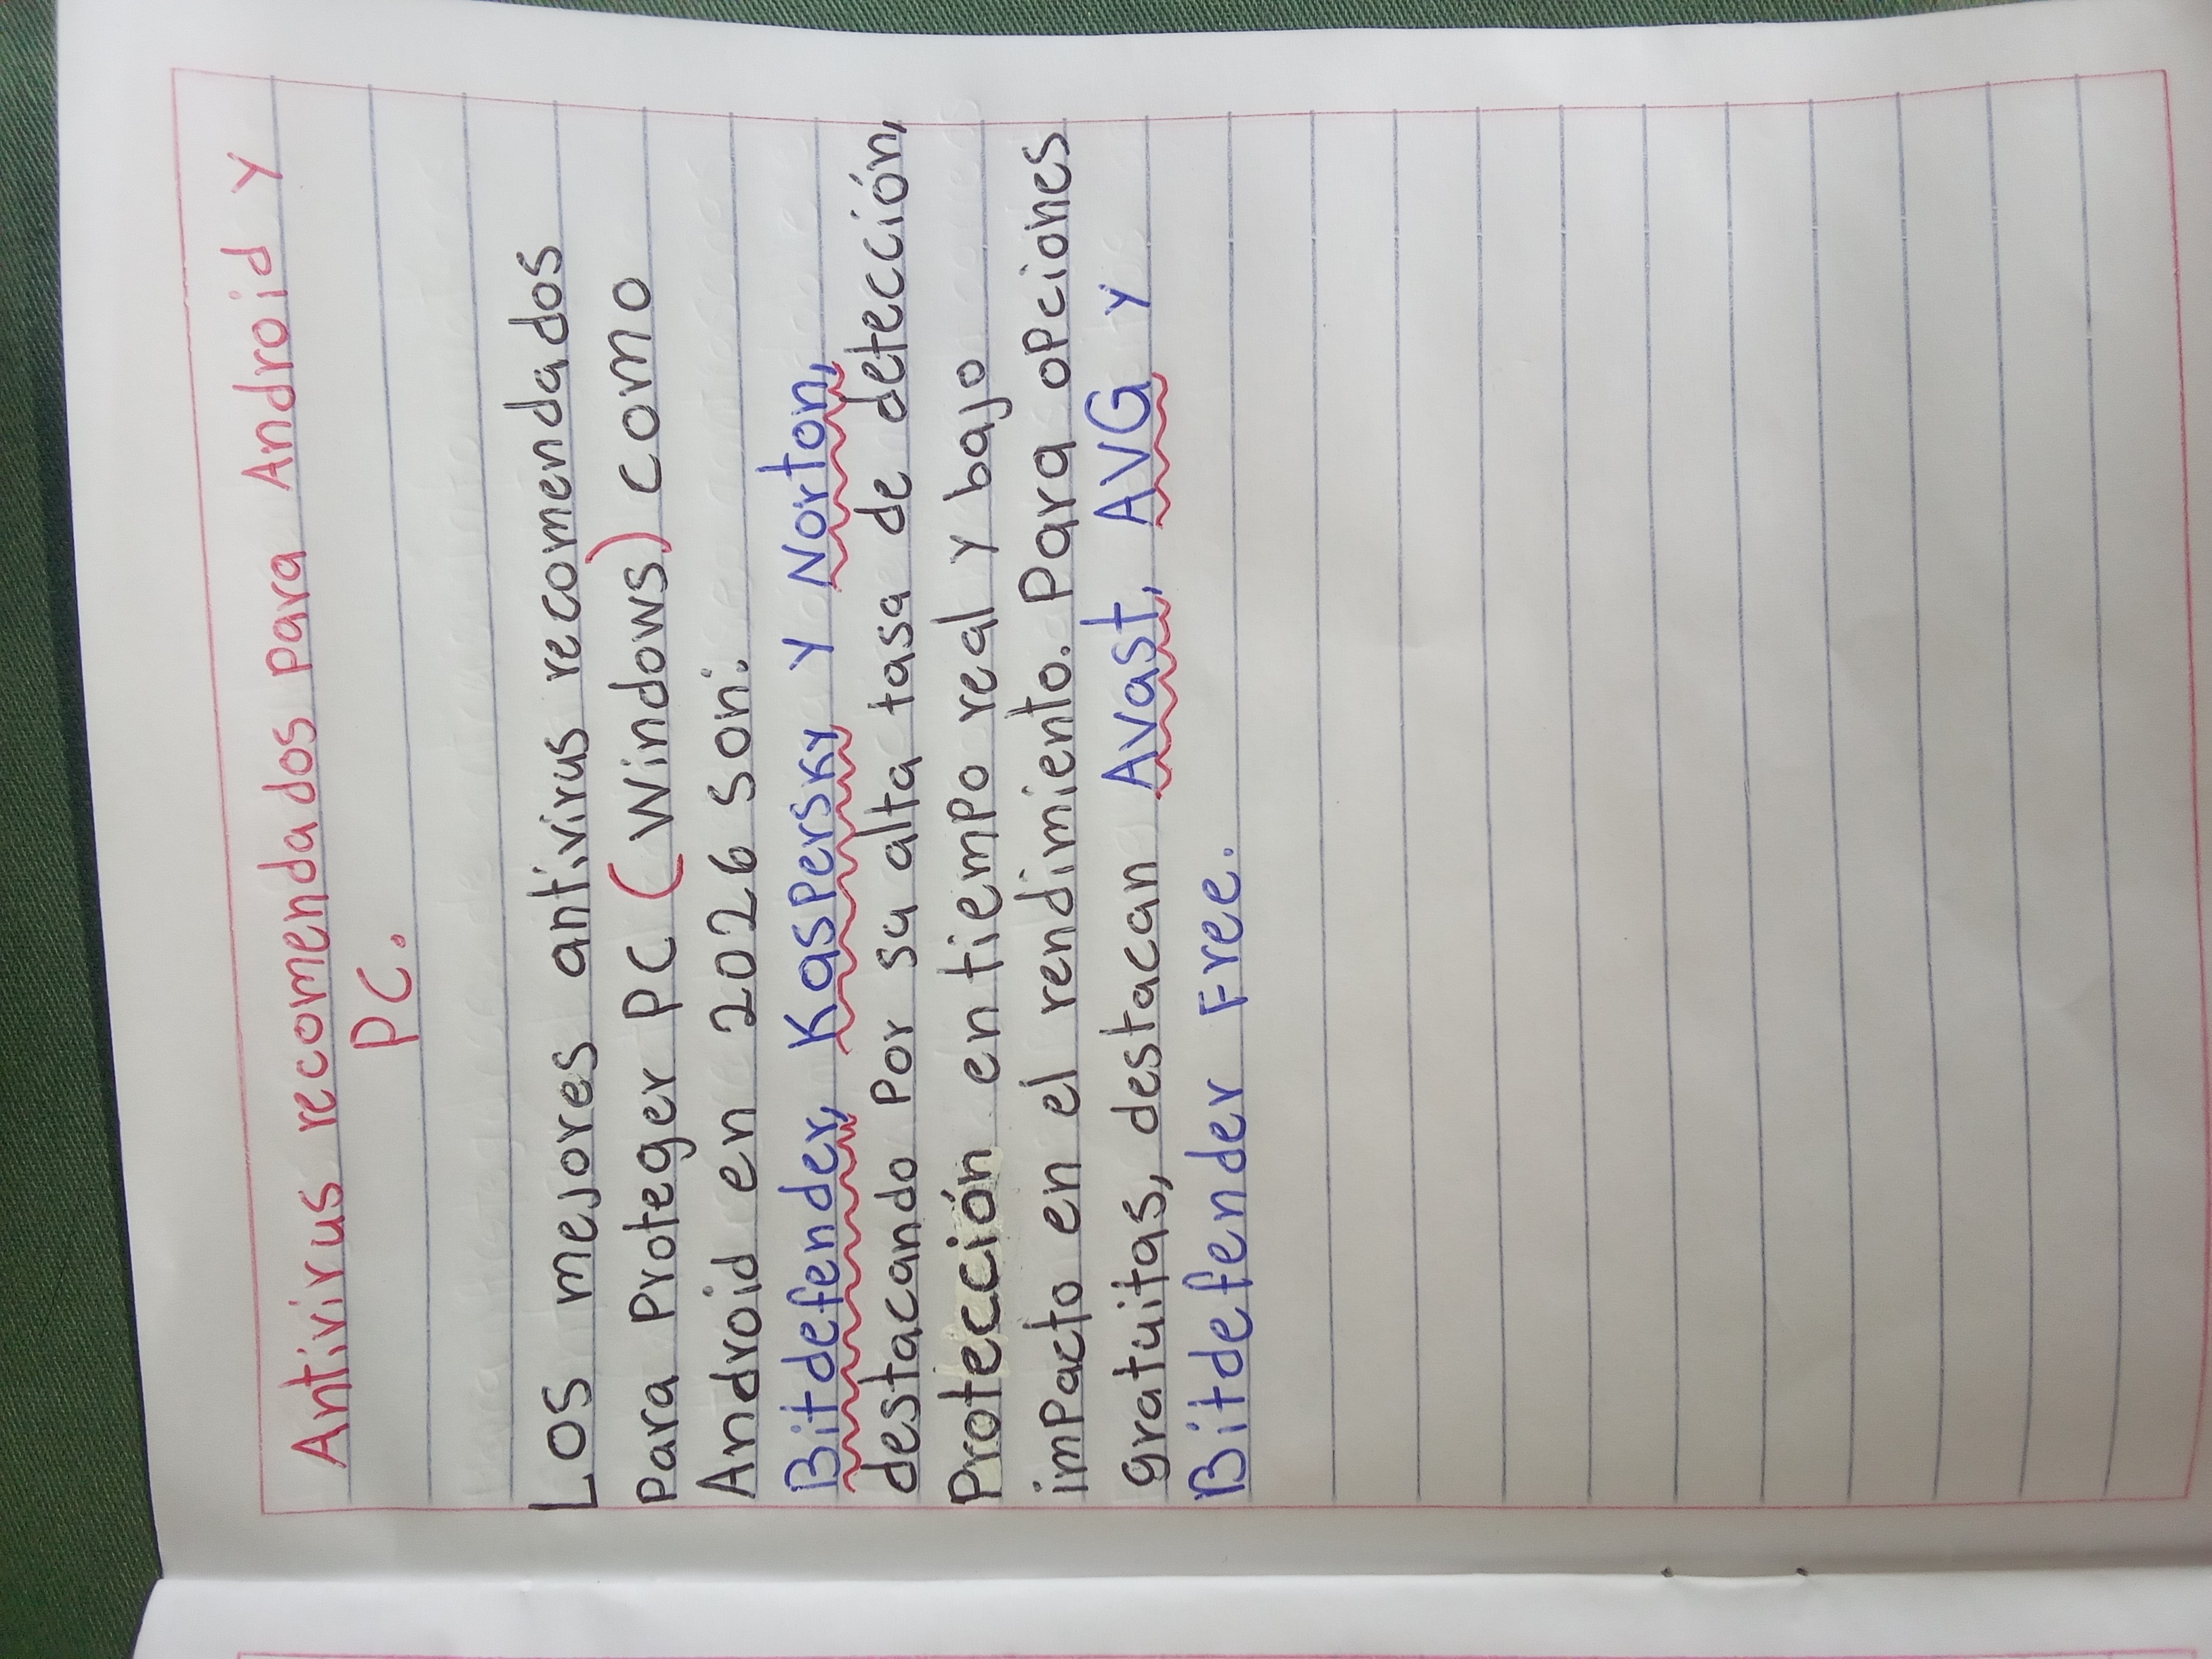 Antivirus recomendados para Android y
PC.
Los mejores antivirus recomendados
para proteger PC (Windows) como
Android en 2026 son:
Bitdefender, Kaspersky y Norton,
destacando por su alta tasa de detección,
protección en tiempo real y bajo
impacto en el rendimiento. Para opciones
gratuitas, destacan Avast, AVG y
Bitdefender Free.